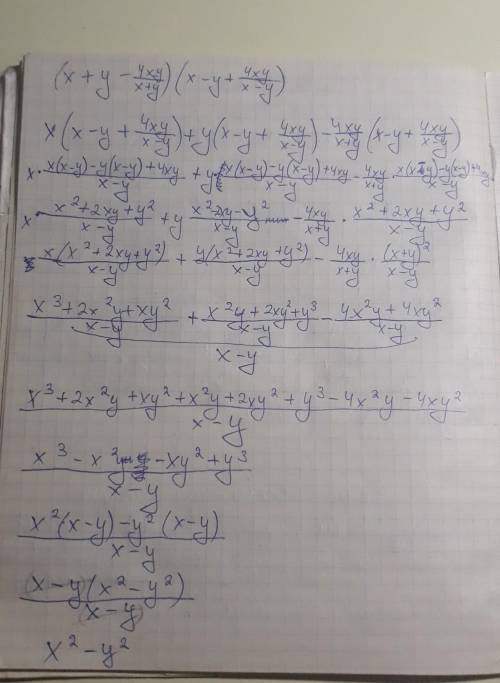 (x + y - 4xy/(x+y)) (x - y + 4xy/(x-y))
x(x - y + 4xy/(x-y)) + y(x - y + 4xy/(x-y)) - 4xy/(x+y) (x - y + 4xy/(x-y))
x · (x(x-y)-y(x-y)+4xy)/(x-y) + y · (x(x-y)-y(x-y)+4xy)/(x-y) - 4xy/(x+y) · (x(x-y)-y(x-y)+4xy)/(x-y)
x · (x²+2xy+y²)/(x-y) + y (x²-2xy-y²)/(x-y) - 4xy/(x+y) · (x²+2xy+y²)/(x-y)
x(x²+2xy+y²)/(x-y) + y(x²+2xy+y²)/(x-y) - 4xy/(x+y) · (x+y)²/(x-y)
(x³+2x²y+xy²)/(x-y) + (x²y+2xy²+y³)/(x-y) - (4x²y+4xy²)/(x-y)
x-y
(x³+2x²y+xy²+x²y+2xy²+y³-4x²y-4xy²)/(x-y)
(x³-x²y-xy²+y³)/(x-y)
(x²(x-y)-y²(x-y))/(x-y)
(x-y)(x²-y²)/(x-y)
x²-y²